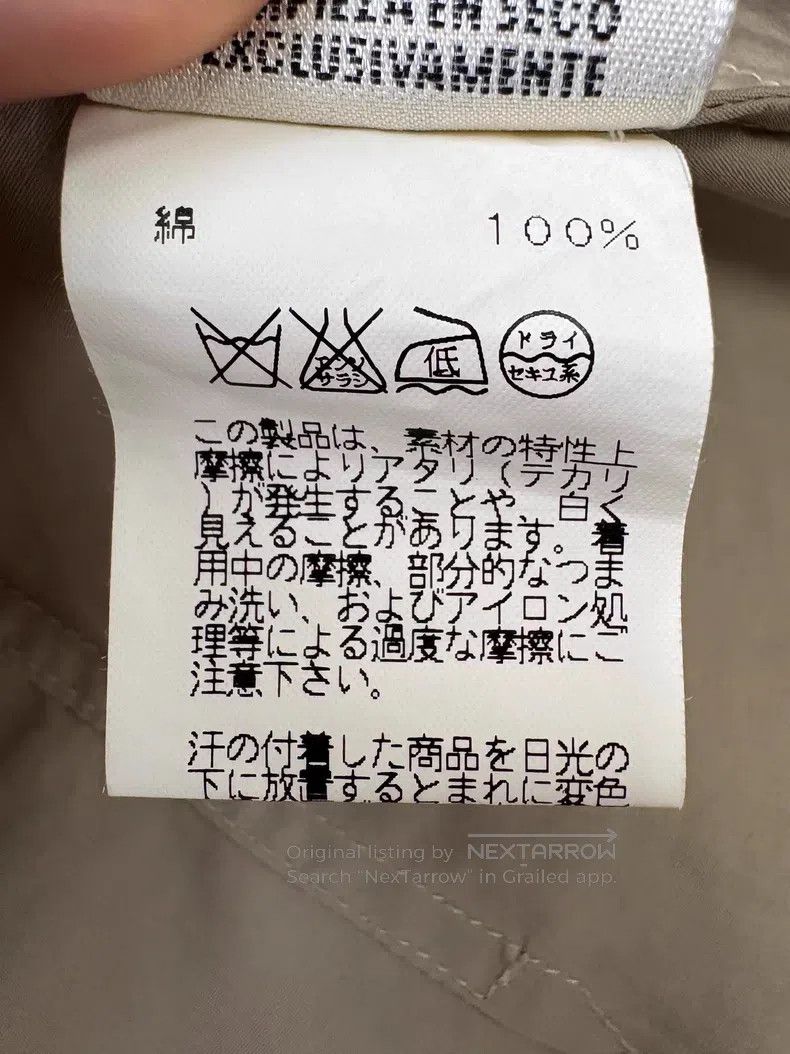 EN SECO
EXCLUSIVAMENTE
綿 100%
エンソ
サラシ
低
ドライ
セキユ系
この製品は、素材の特性上
摩擦によりアタリ(テカリ
)が発生することや、白く
見えることがあります。着
用中の摩擦、部分的なつま
み洗い、およびアイロン処
理等による過度な摩擦にご
注意下さい。
汗の付着した商品を日光の
下に放置するとまれに変色
Original listing by NEXTARROW
Search "NexTarrow" in Grailed app.